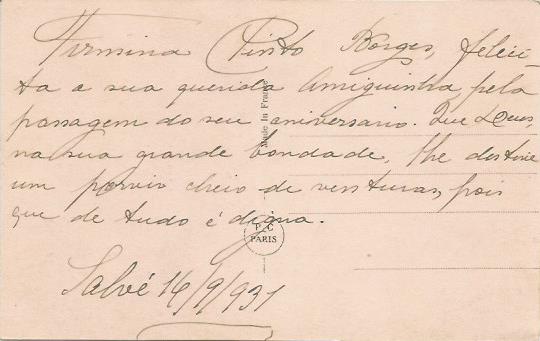 Firmina Pinto Borges, felici-
ta a sua querida amiguinha, pela
passagem do seu aniversario. Que Deus,
na sua grande bondade, lhe destine
um porvir cheio de venturas, pois
que de tudo é digna.
Salvé 16/9/931
Made in France
P C
PARIS